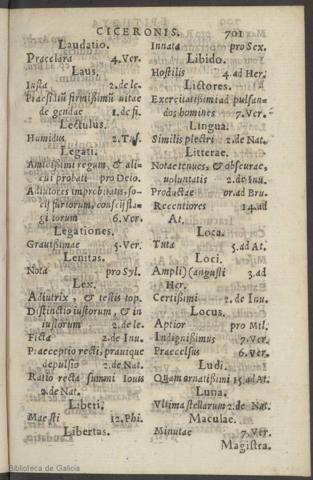 CICERONIS. 701
Laudatio.
Praeclara 4.Ver.
Laus.
Iusta 2.de le.
Praesidiũ firmissimũ uitae
de gendae 1.de fi.
Lectulus.
Humidus 2.Tus.
Legati.
Amicissimi regum, & ali-
cui probati pro Deio.
Adiutores improbitatis, so-
cij furtorum, conscij fla-
gitiorum 6.Ver.
Legationes.
Grauissimae 5.Ver.
Lenitas.
Nota pro Syl.
Lex.
Adiutrix, & testis top.
Distinctio iustorum, & in
iustorum 2.de le.
Ficta 2.de Inu.
Praeceptio recti, prauique
depulsio 2.de Nat.
Ratio recta summi Iouis
2.de Nat.
Liberi.
Maesti 12.Phi.
Libertas.
Innata pro Sex.
Libido.
Hostilis 4.ad Her.
Lictores.
Exercitatissimi ad pulsan-
dos homines 7.Ver.
Lingua.
Similis plectri 2.de Nat.
Litterae.
Notae tenues, & obscurae,
uoluntatis 2.de Inu.
Productae or.ad Bru.
Recentiores 14.ad
At.
Loca.
Tuta 5.ad At.
Loci.
Ampli)(angusti 3.ad
Her.
Certissimi 2.de Inu.
Locus.
Aptior pro Mil.
Indignissimus 7.Ver.
Praecelsus 6.Ver.
Ludi.
Quam ornatissimi 15.ad At.
Luna.
Vltima stellarum 2.de Nat.
Maculae.
Minutae 7.Ver.
Magistra.
Biblioteca de Galicia